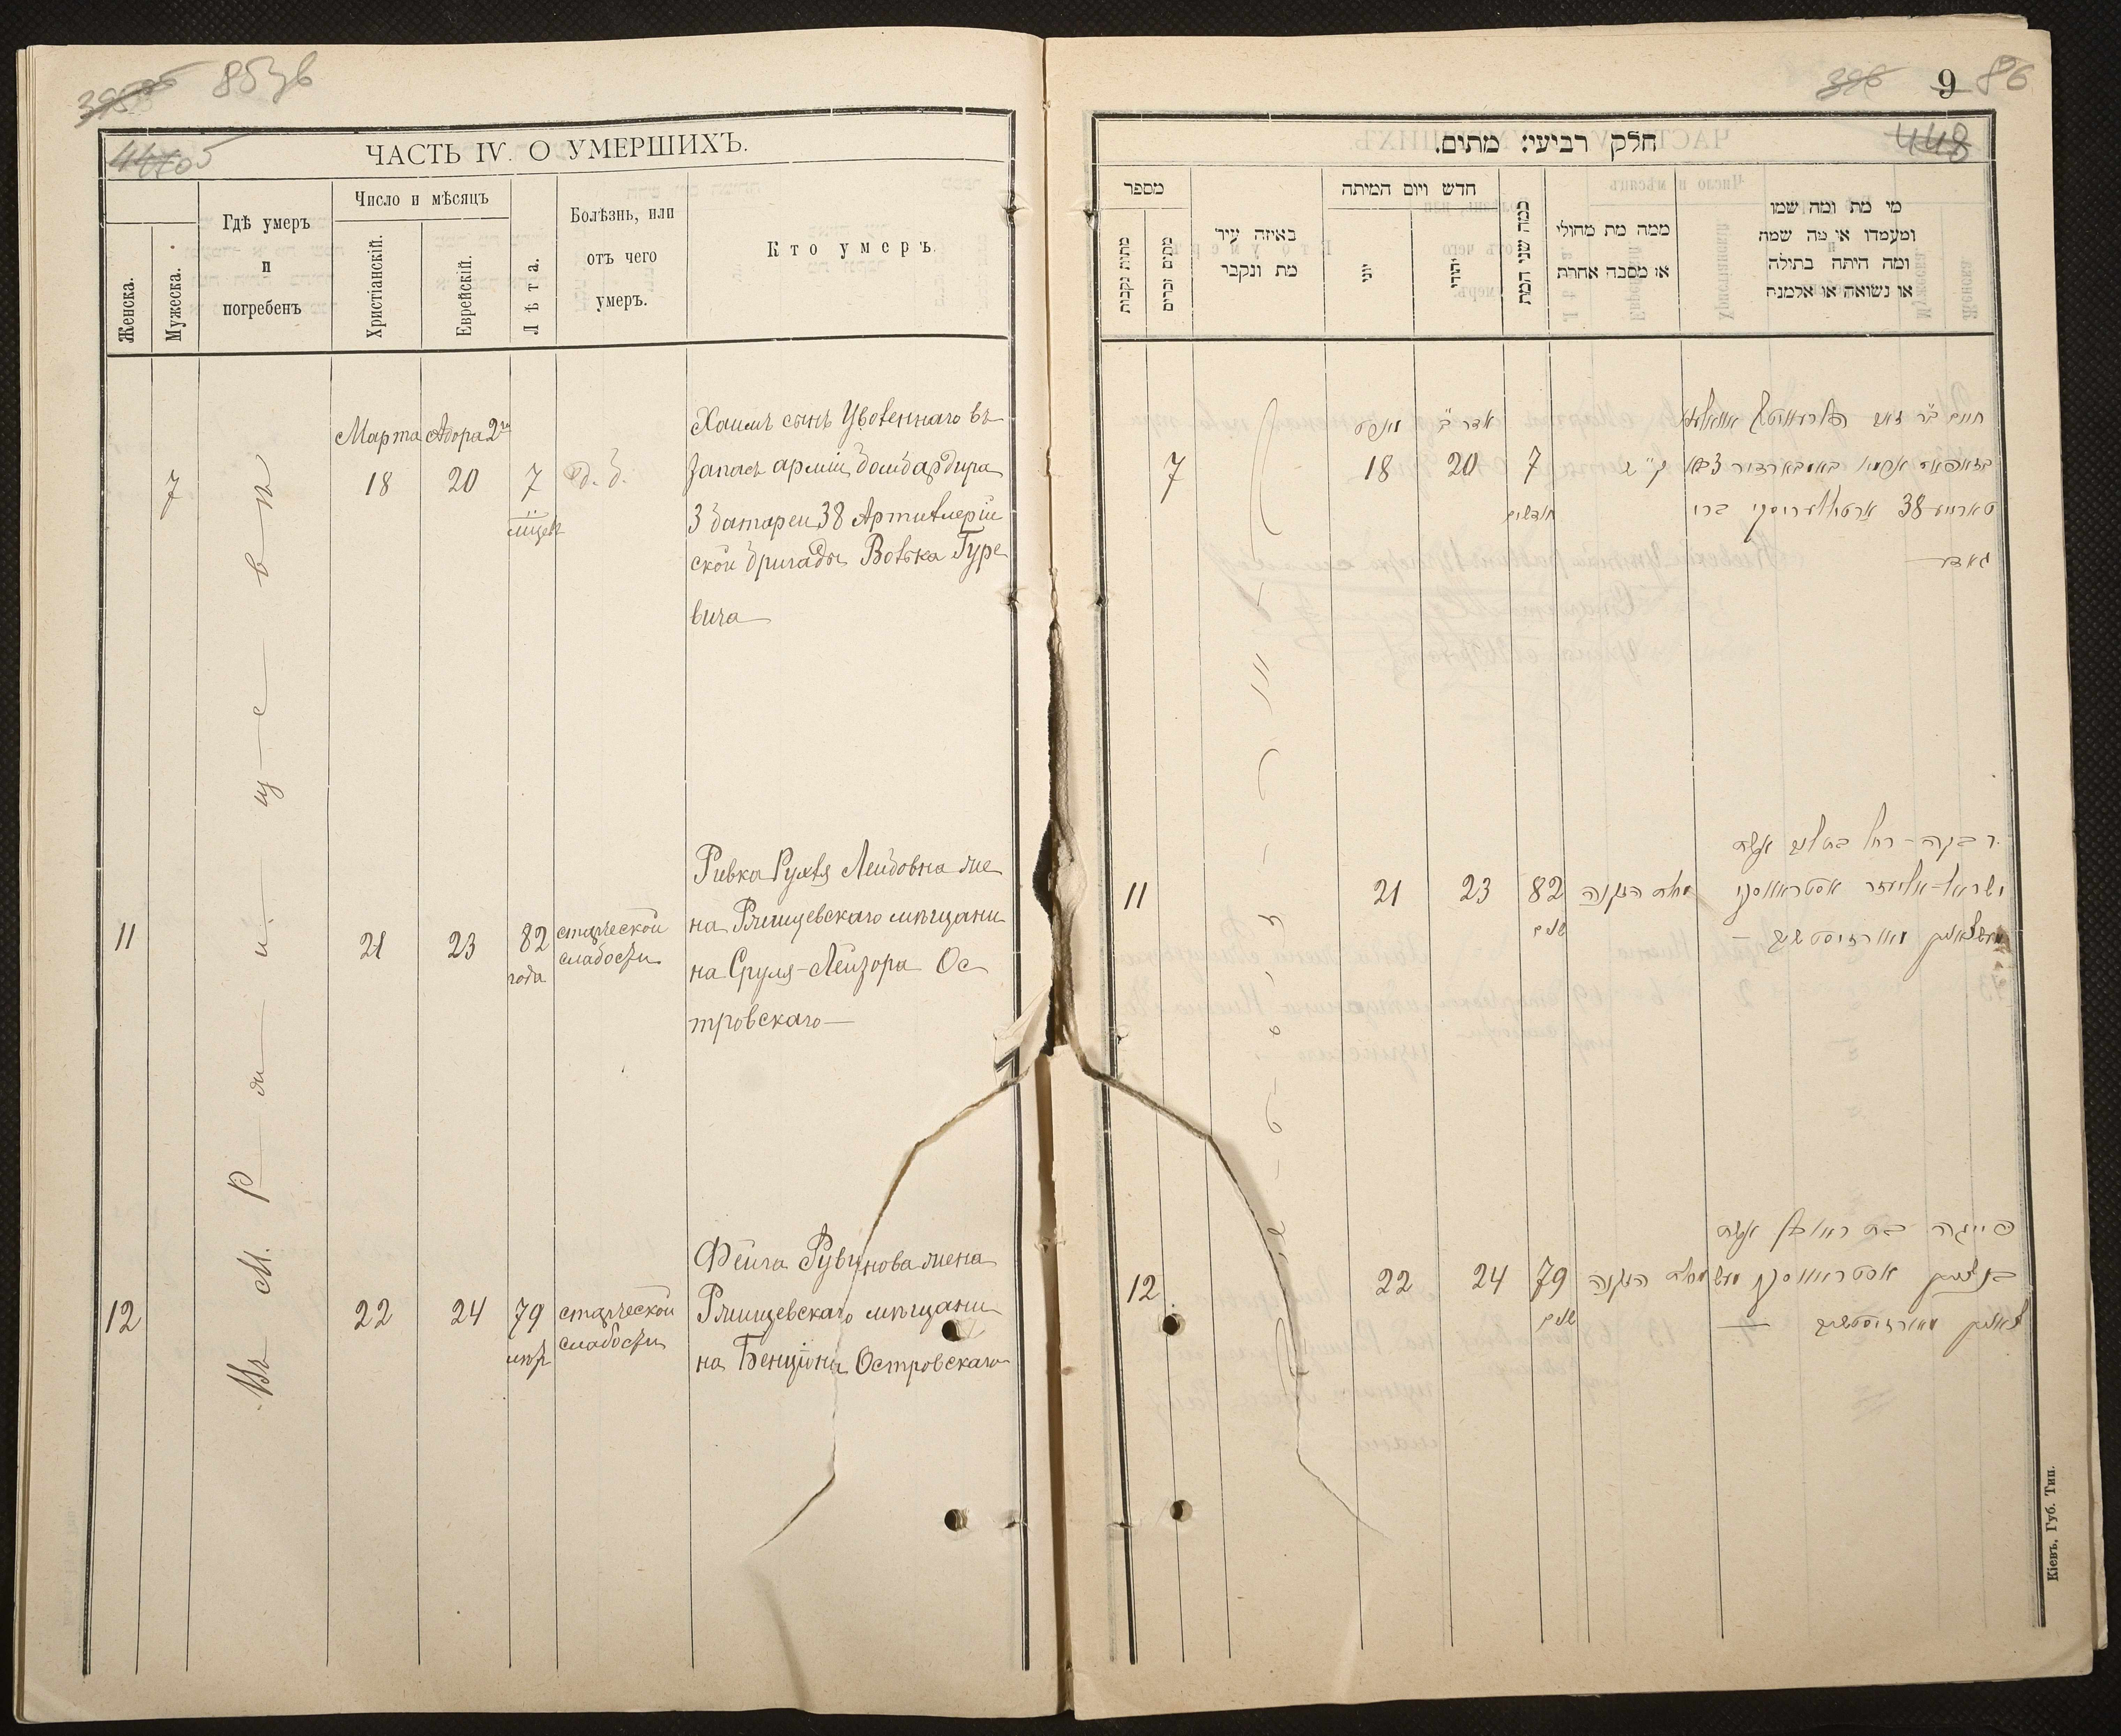 85 зв
ЧАСТЬ IV. О УМЕРШИХЪ.
Женска.
Мужеска.
Гдѣ умеръ
и
погребенъ
Число и мѣсяцъ
Христіанскій.
Еврейскій.
Лѣта.
Болѣзнь, или
отъ чего
умеръ.
Кто умеръ.
Въ м. Ржищевѣ
7
Марта
18
Адора 2го
20
7
Хаимъ сынъ Уволеннаго въ
Запасъ арміи бомбардира
3 батареи 38 Артиллерій
ской бригады Волька Гуре
вича
11
21
23
82
года
старческой
слабости
Ривка Рухля Лейбовна же
на Ржищевскаго мѣщани
на Сруля-Лейзора Ос
тровскаго
12
22
24
79
лѣтъ
старческой
слабости
Фейга Рувинова жена
Ржищевскаго мѣщани
на Бенціона Островскаго
9 86
448
חלק רביעי: מתים.
מספר
מתות נקבות
מתים זכרים
באיזה עיר
מת ונקבר
חדש ויום המיתה
יוני
יהודי
כמה שני המת
ממה מת מחולי
או מסבה אחרת
מי מת ומה שמו
ומעמדו או מה שמה
ומה היתה בתולה
או נשואה או אלמנה
7
מארט
18
אדר ב׳
20
7
חודשים
חיים ב״ר
38
11
21
23
82
שנים
מחלת הזקנה
רבקה-רחל אשת
ישראל-אליעזר אסטראווסקי
12
22
24
79
שנים
מחלת הזקנה
פייגה בת ראובן אשת
בנציון אסטראווסקי
Кіевъ, Губ. Тип.